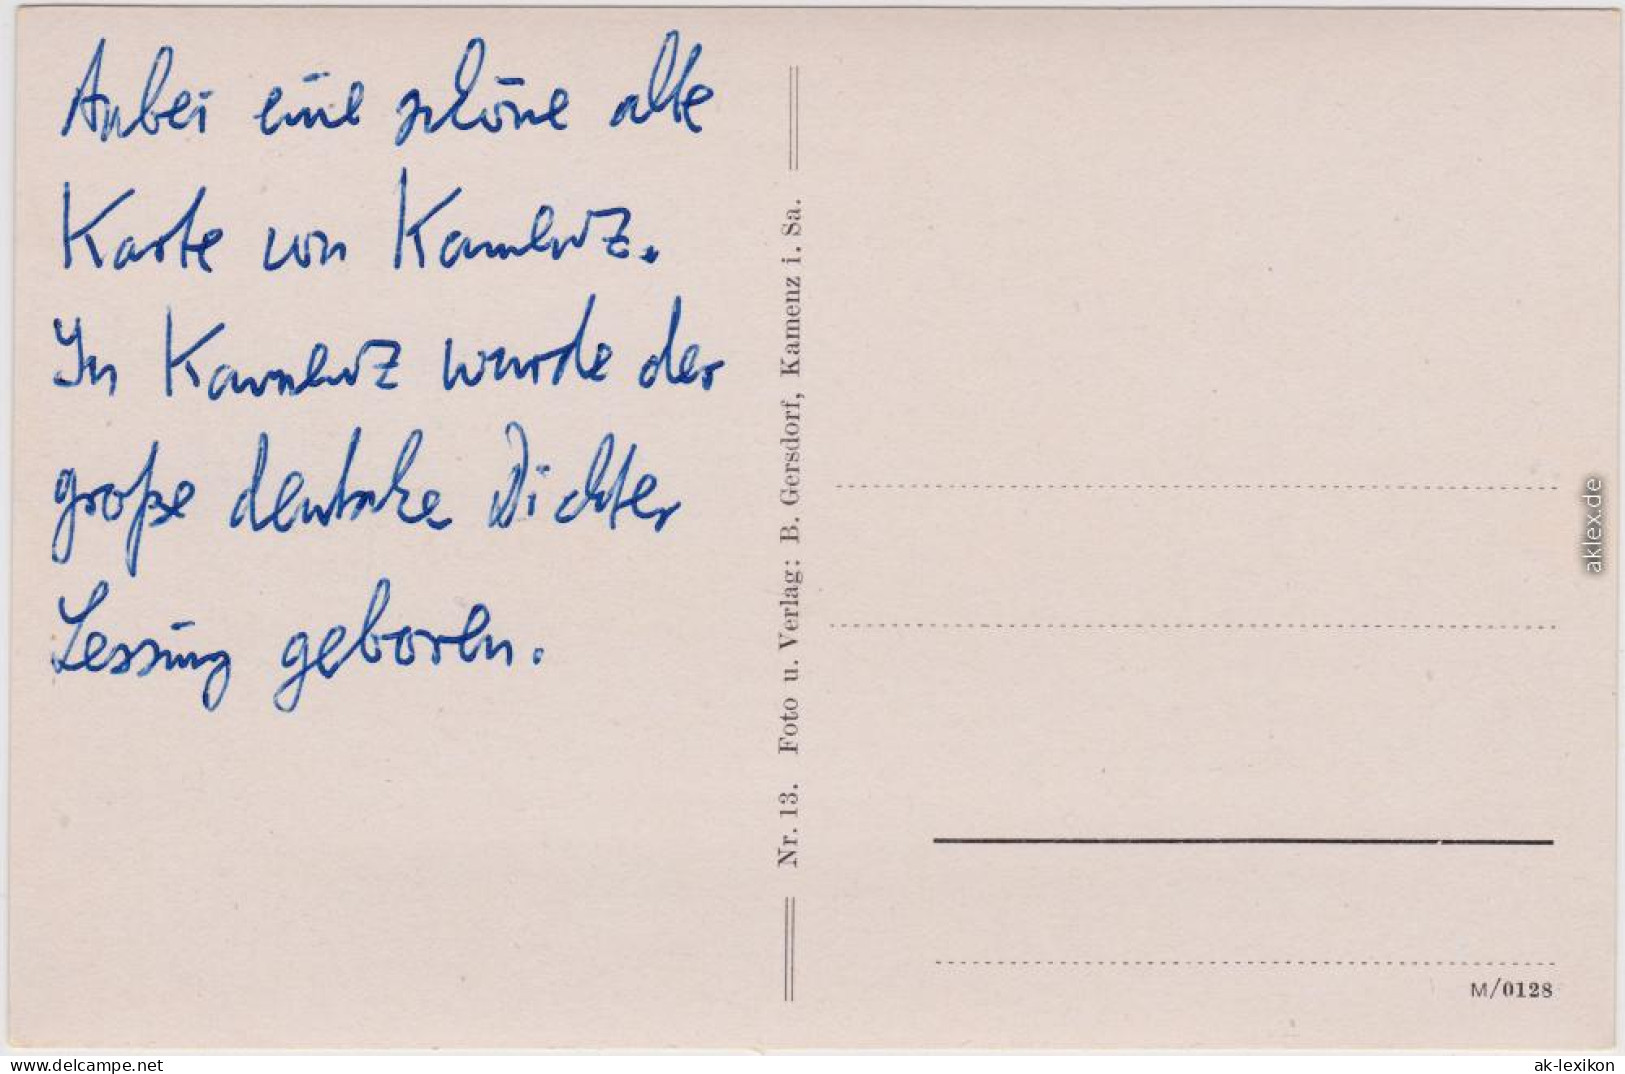 Anbei eine schöne alte
Karte von Kamenz.
In Kamenz wurde der
große deutsche Dichter
Lessing geboren.
Nr. 13. Foto u. Verlag: B. Gersdorf, Kamenz i. Sa.
M/0128
aklex.de
www.delcampe.net
ak-lexikon